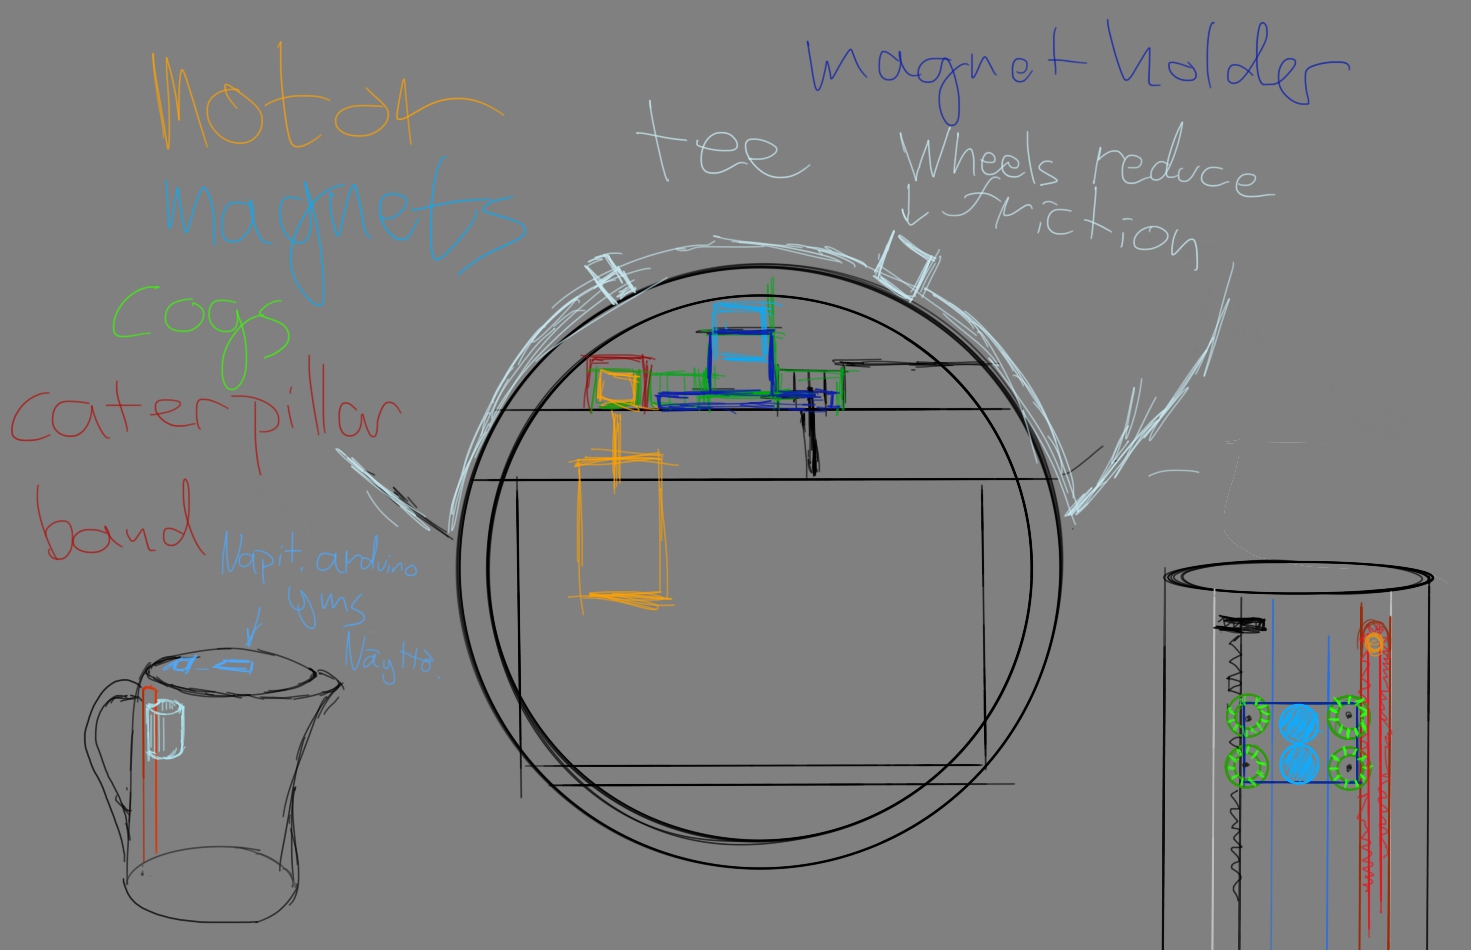 Motor
magnets
cogs
caterpillar
band
tee
magnet holder
Wheels reduce
friction
Napit, arduino
yms
Näyttö.